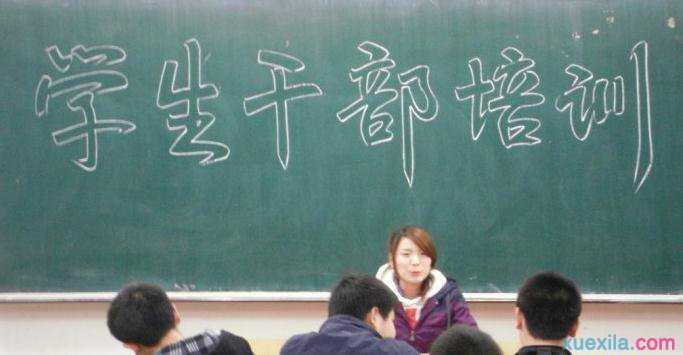 学生干部培训
xuexila.com